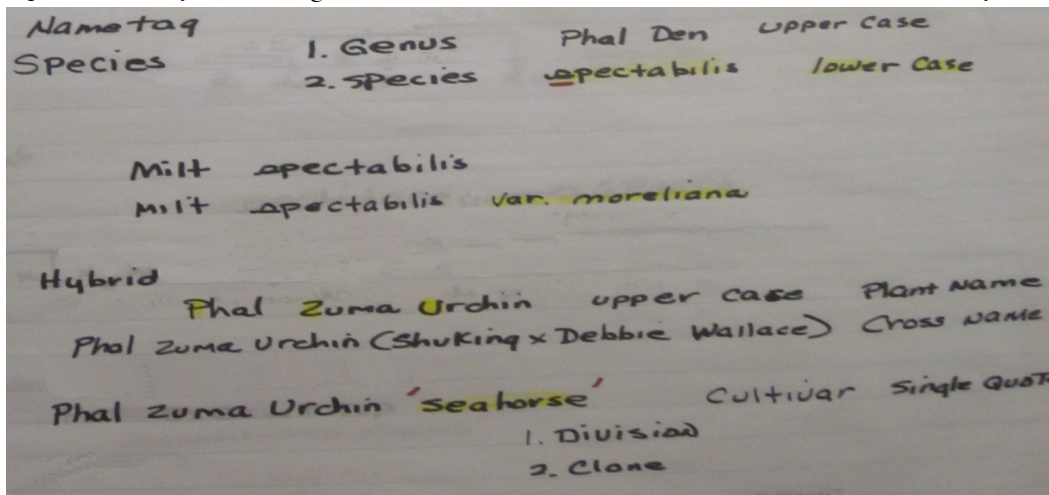 Name tag
Species 1. Genus Phal Den upper case
2. species spectabilis lower case
Milt spectabilis
Milt spectabilis var. moreliana
Hybrid
Phal Zuma Urchin upper case Plant Name
Phal Zuma Urchin (Shuking x Debbie Wallace) Cross Name
Phal Zuma Urchin 'seahorse' Cultivar Single Quot
1. Division
2. Clone